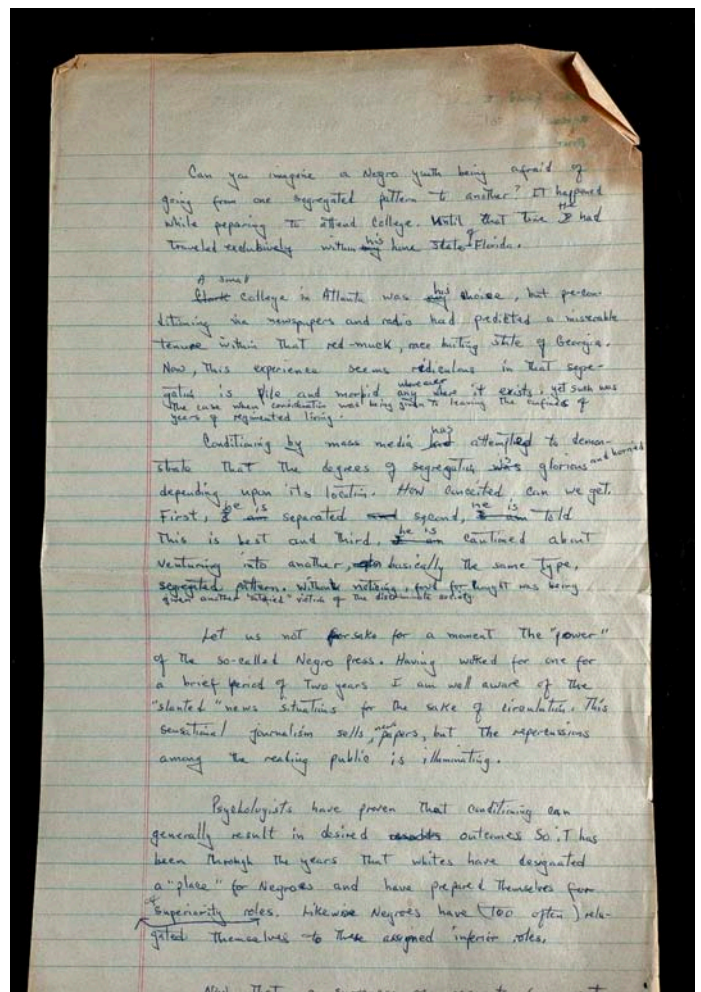 Can you imagine a Negro youth being afraid of
going from one segregated pattern to another? IT happened
while preparing to attend College. Until that time he had
traveled exclusively within his home State of Florida.
A small
College in Atlanta was his choice, but pre-con-
ditioning via newspapers and radio had predicted a miserable
tenure within that red-muck, race baiting state of Georgia.
Now, this experience seems ridiculous in that segre-
gation is vile and morbid wherever it exists, yet such was
the case when consideration was being given to leaving the confines of
years of regimented living.
Conditioning by mass media has attempted to demon-
strate that the degrees of segregation is glorious and horrid
depending upon its location. How conceited can we get.
First, he is separated second, he is told
this is best and third, he is cautioned about
venturing into another, basically the same type,
segregated pattern. Without noticing, food for thought was being
given another victim of the society.
Let us not forsake for a moment the "power"
of the so-called Negro press. Having worked for one for
a brief period of two years I am well aware of the
"slanted" news situations for the sake of circulation. This
sensational journalism sells newspapers, but the repercussions
among the reading public is illuminating.
Psychologists have proven that conditioning can
generally result in desired outcomes So iT has
been through the years that whites have designated
a "place" for Negroes and have prepared themselves for
superiority roles. Likewise Negroes have (too often) rele-
gated themselves to these assigned inferior roles.